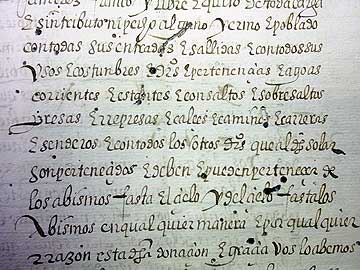 franco y libre e quito de toda carga
e sin tributo ni pecho alguno yermo e poblado
con todas sus entradas e sallidas e con todos sus
usos e costumbres e drs e pertenençias e agoas
corrientes e estantes e con saltos e sobresaltos
y presas e rrepresas e calçes e caminos e carreras
e senderos e con todos los otros drs que al dho solar
son pertenençiados e deben e pueden pertenesçer de
los abismos fasta el çielo y del çielo fasta los
abismos en qualquier manera e por qualquier
rrazon esta dha donaçion e graçia vos lo abemos